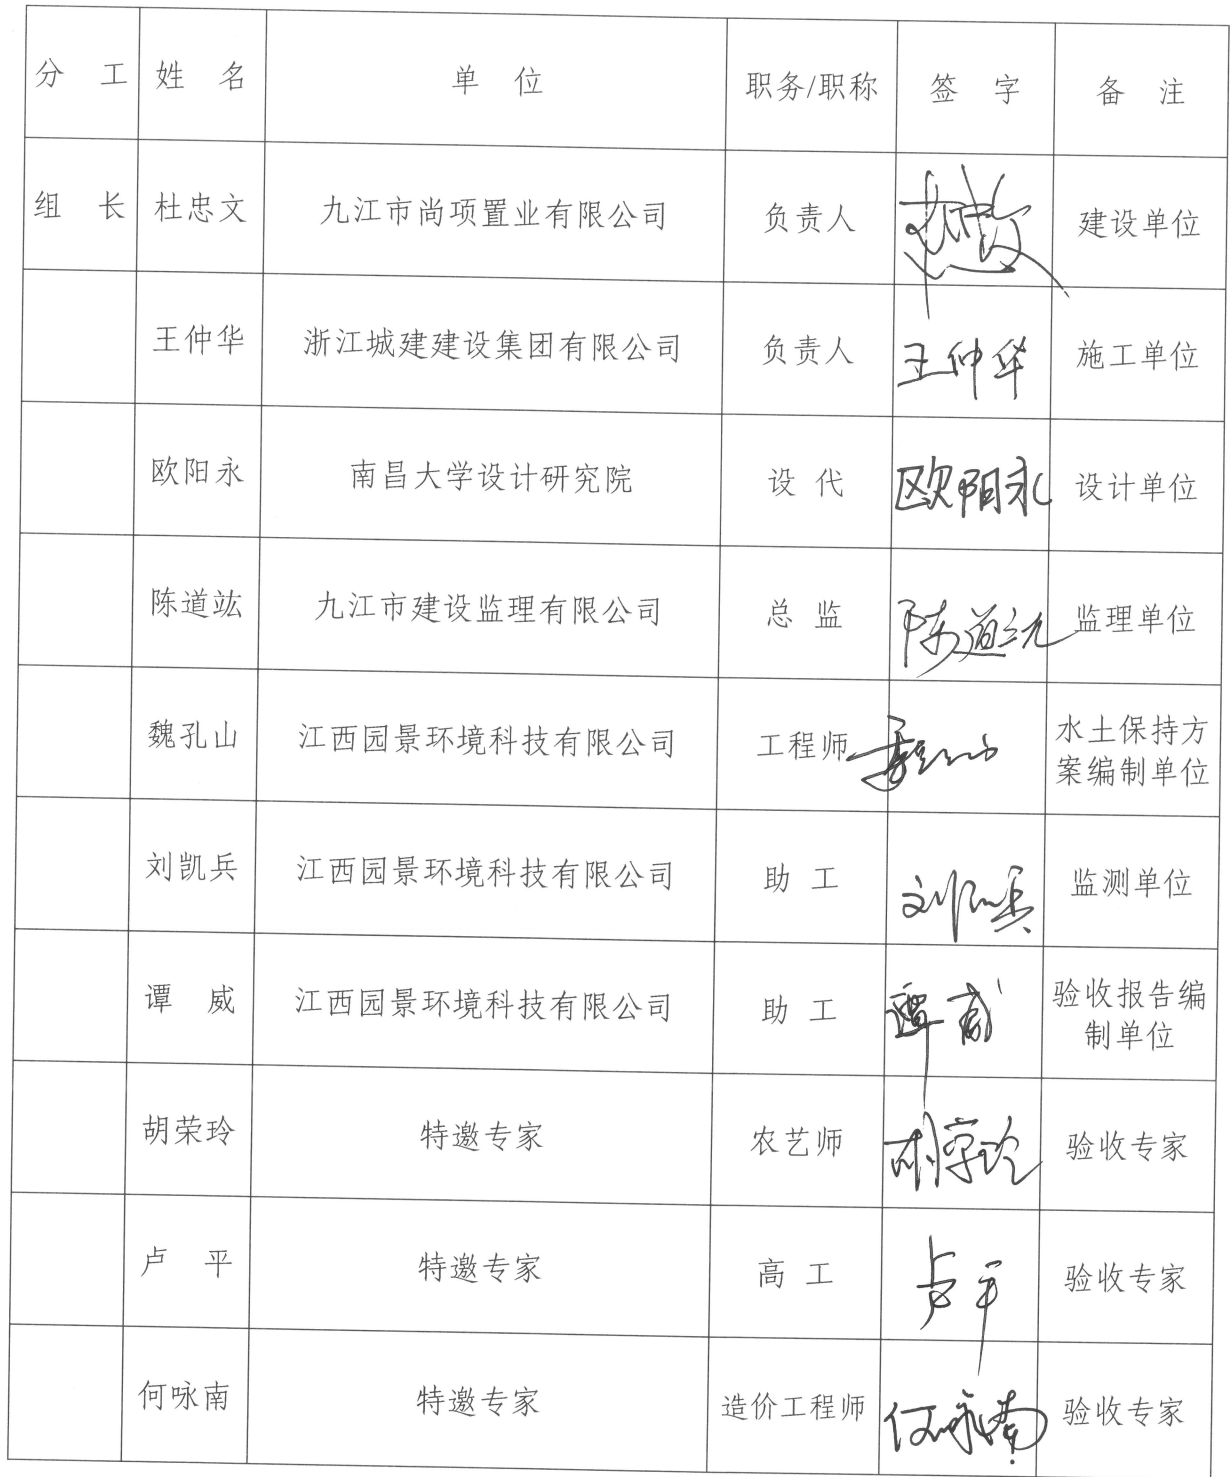 分 工 姓 名 单 位 职务/职称 签 字 备 注
组 长 杜忠文 九江市尚项置业有限公司 负责人 杜忠文 建设单位
王仲华 浙江城建建设集团有限公司 负责人 王仲华 施工单位
欧阳永 南昌大学设计研究院 设 代 欧阳永 设计单位
陈道竑 九江市建设监理有限公司 总 监 陈道竑 监理单位
魏孔山 江西园景环境科技有限公司 工程师 水土保持方
案编制单位
刘凯兵 江西园景环境科技有限公司 助 工 刘凯兵 监测单位
谭 威 江西园景环境科技有限公司 助 工 谭威 验收报告编
制单位
胡荣玲 特邀专家 农艺师 胡荣玲 验收专家
卢 平 特邀专家 高 工 卢平 验收专家
何咏南 特邀专家 造价工程师 何咏南 验收专家